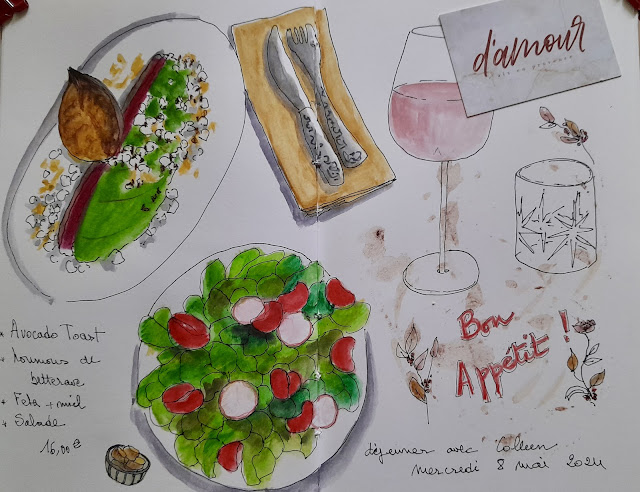 d'amour
* Avocado Toast
* houmous de
betterave
* Feta + miel
* Salade
16,00 €
Bon
Appétit !
déjeuner avec Colleen
mercredi 8 mai 2024